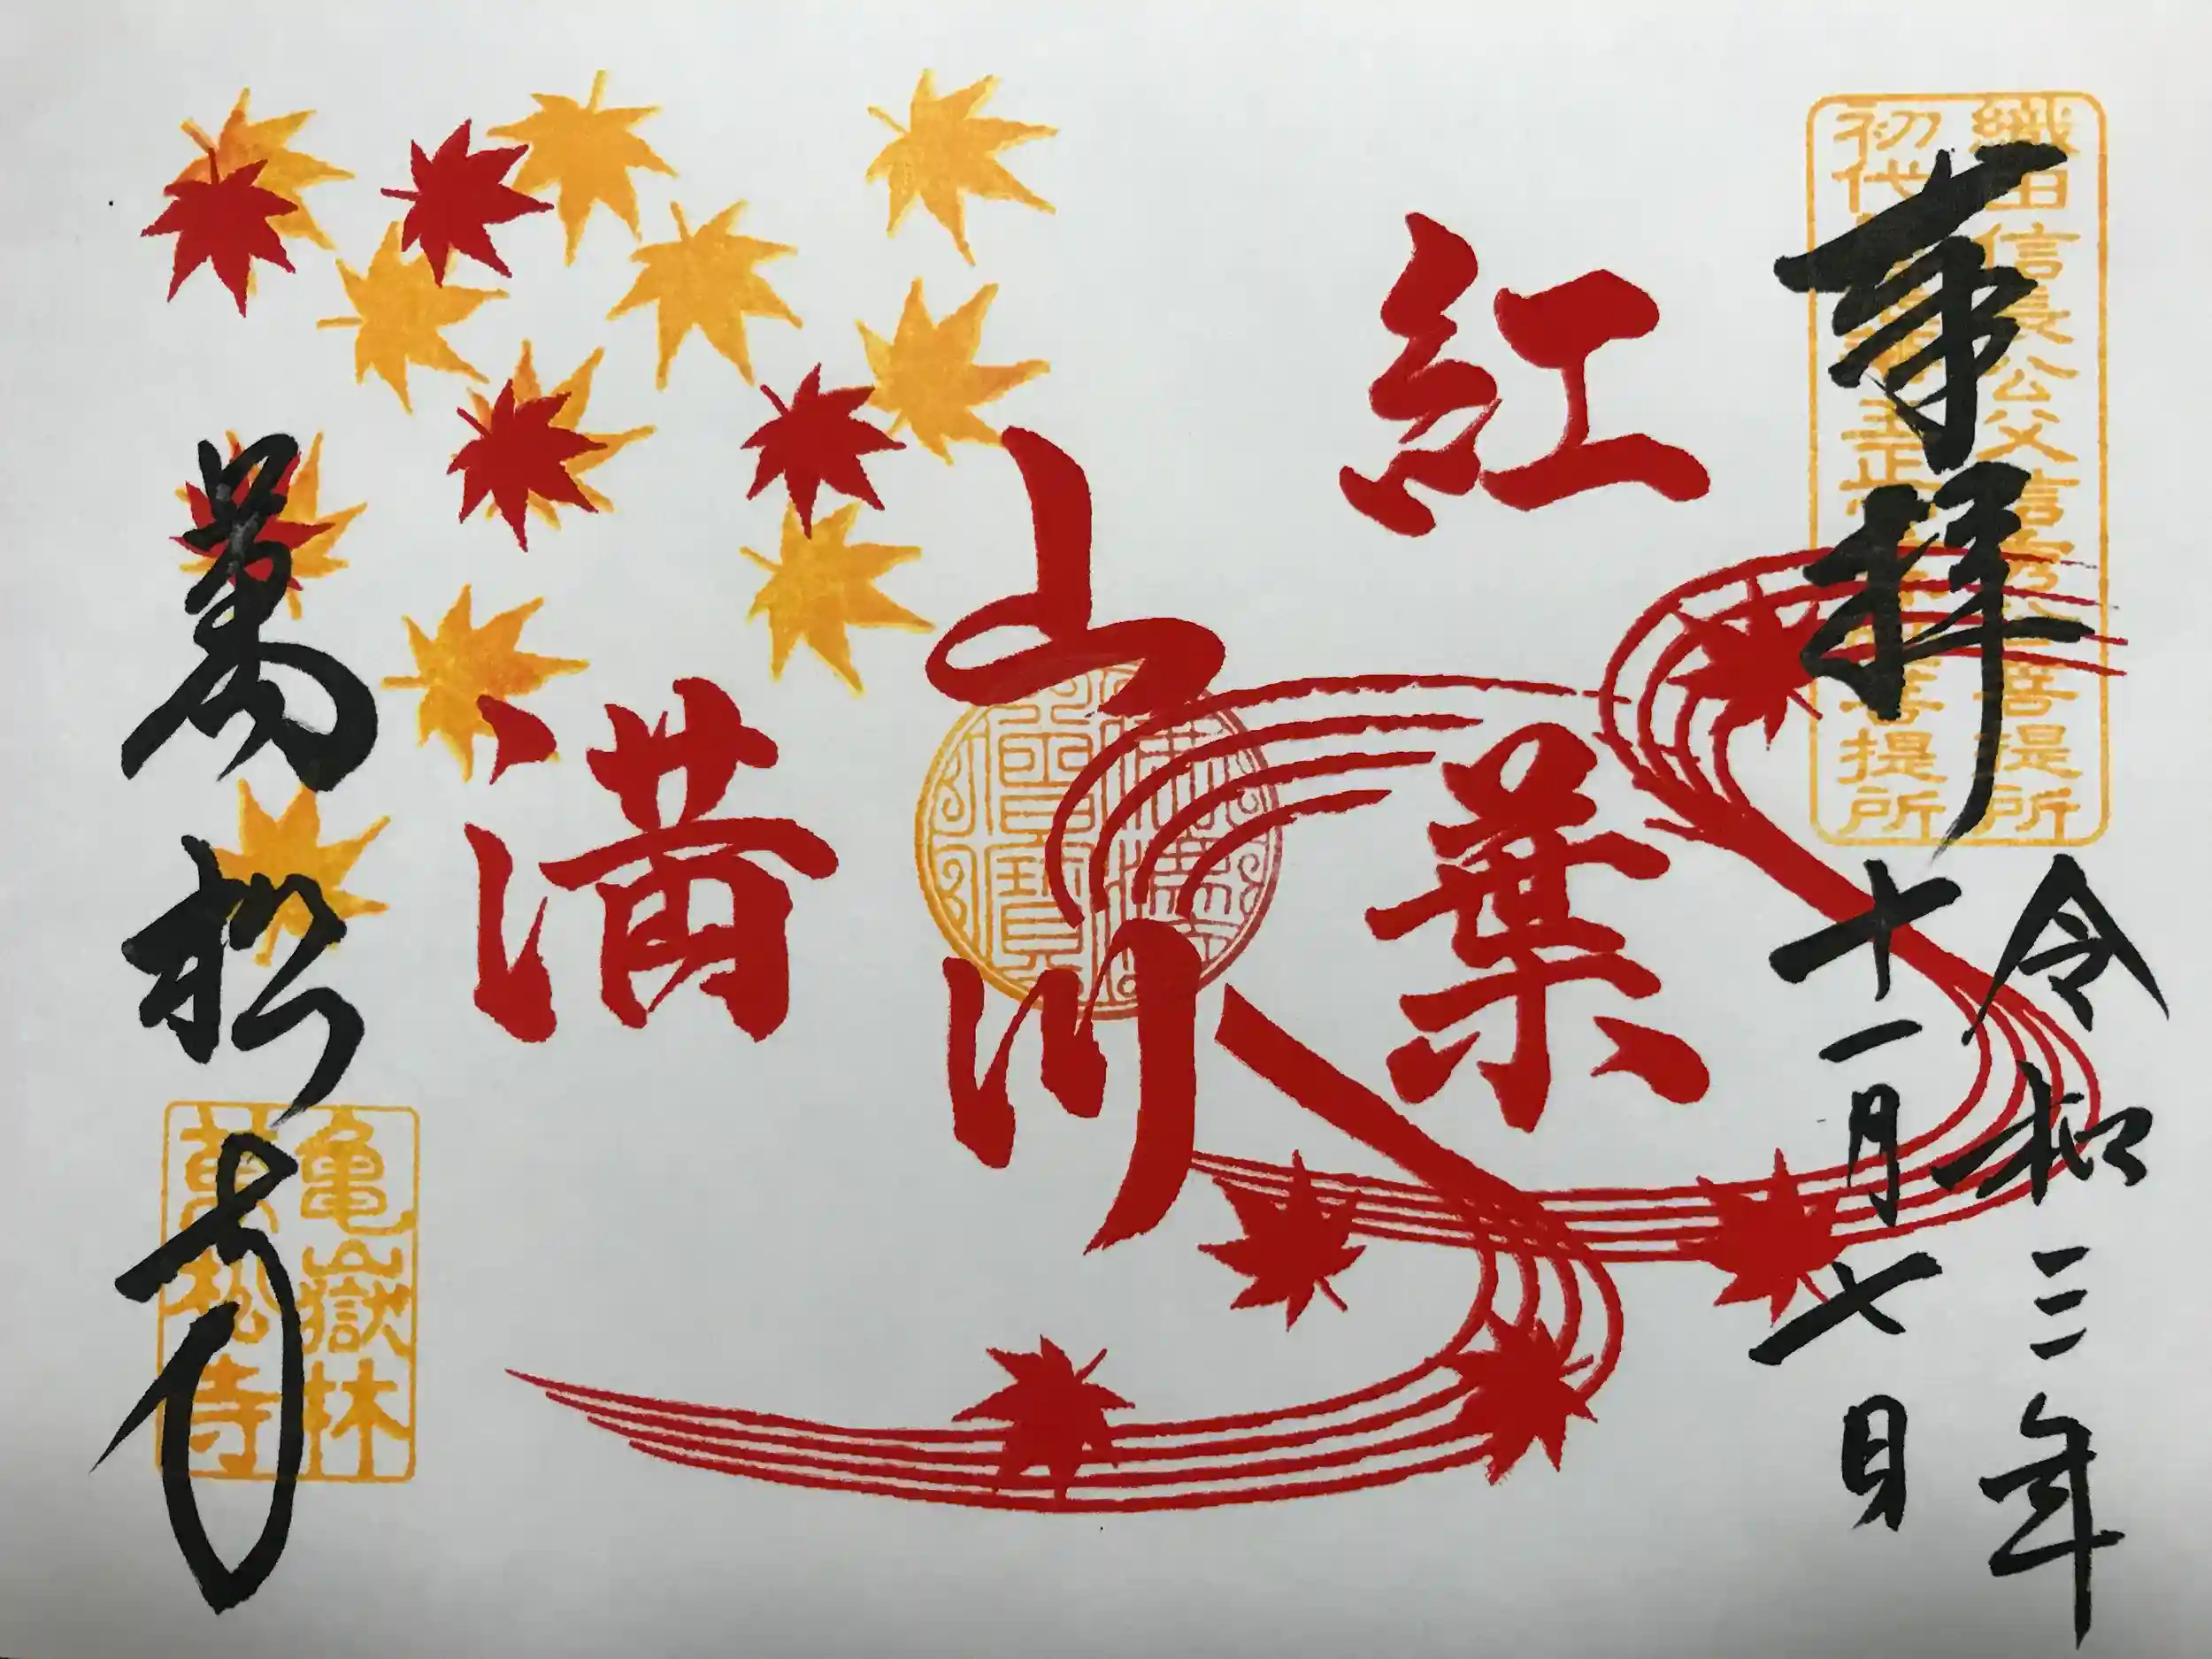 奉拝
織田信長公父信秀公菩提所
初代
正
菩提所
令和三年
十一月七日
紅葉
山川
満
佛法僧寶
萬松寺
亀嶽林
萬松寺